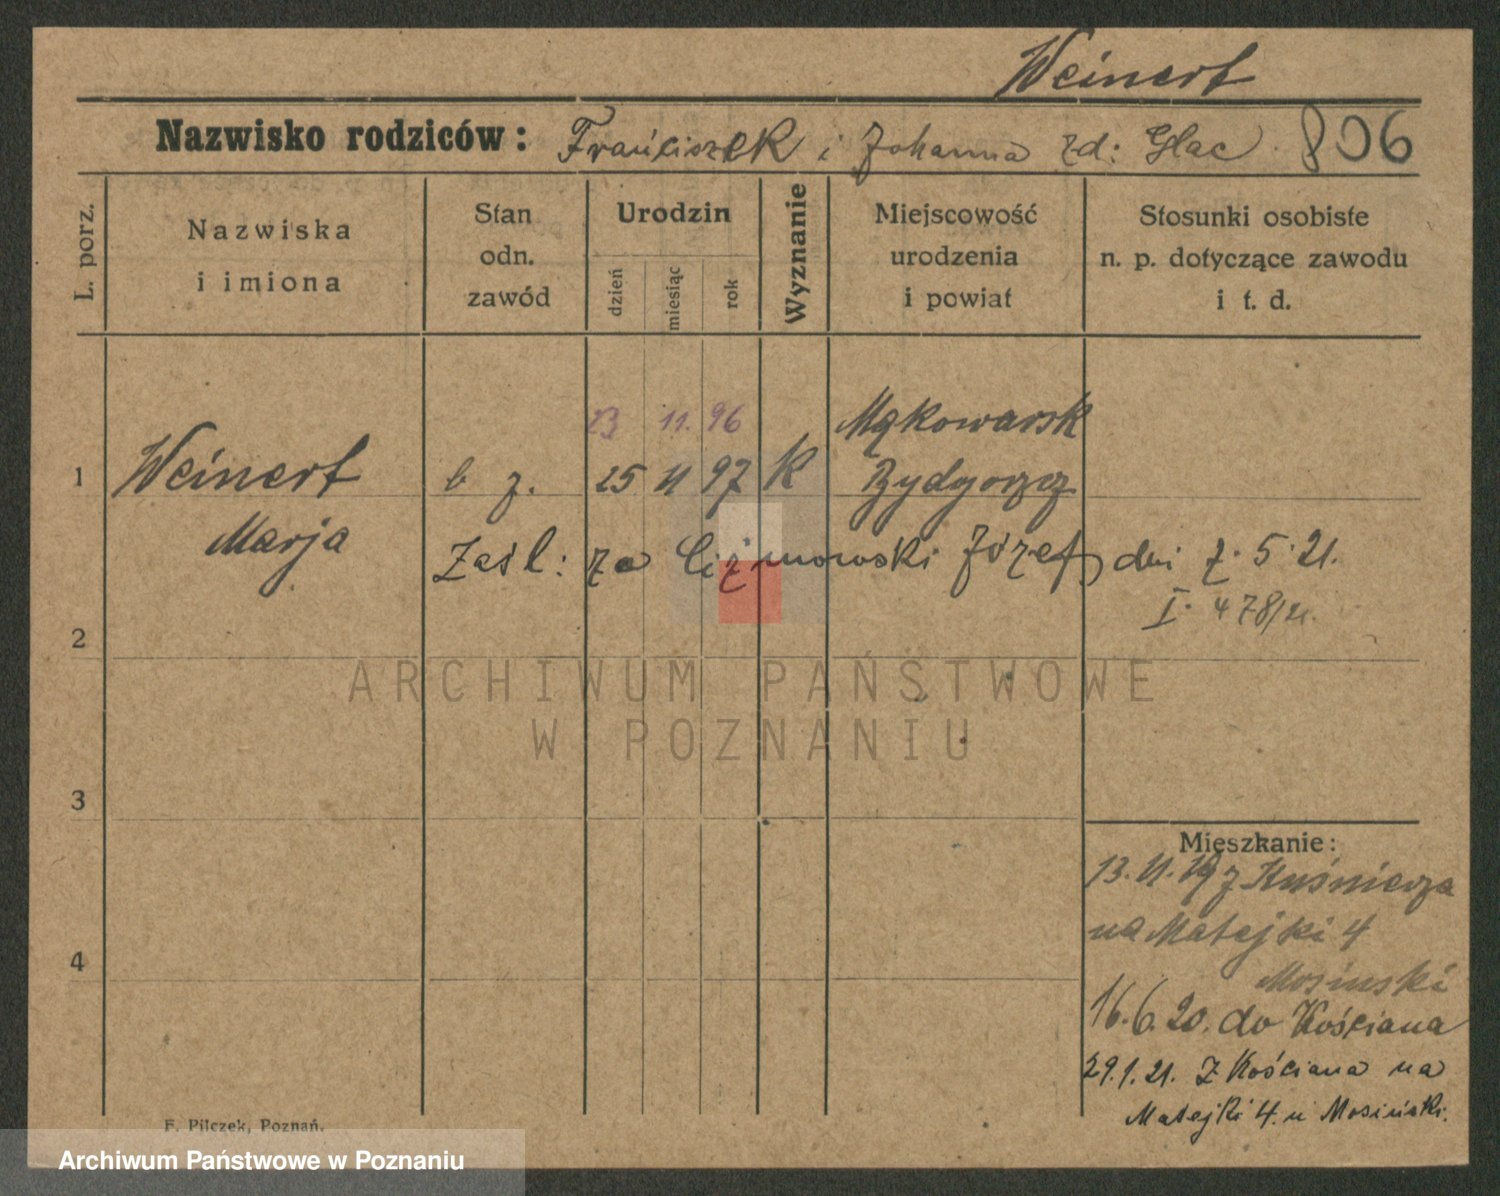 Weinert
Nazwisko rodziców: Franciszek i Johanna zd: Glac. 806
L. porz.
Nazwiska
i imiona
Stan
odn.
zawód
Urodzin
dzień
miesiąc
rok
Wyznanie
Miejscowość
urodzenia
i powiat
Stosunki osobiste
n. p. dotyczące zawodu
i t. d.
23 11. 96
Mąkowarsk
1 Weinert b z. 25 11 97 K Bydgoszcz
Marja
Zaśl: za Ciżmowski Józef, dni 7. 5. 21.
I. 478/21.
2
3
4
Mieszkanie:
13. 11. 19 z Kuśnierza
na Matejki 4
Mosinski
16. 6. 20. do Kościana
29. 1. 21. Z Kościana na
Matejki 4. u Mosiński.
F. Pilczek, Poznań.
ARCHIWUM PAŃSTWOWE
W POZNANIU
Archiwum Państwowe w Poznaniu